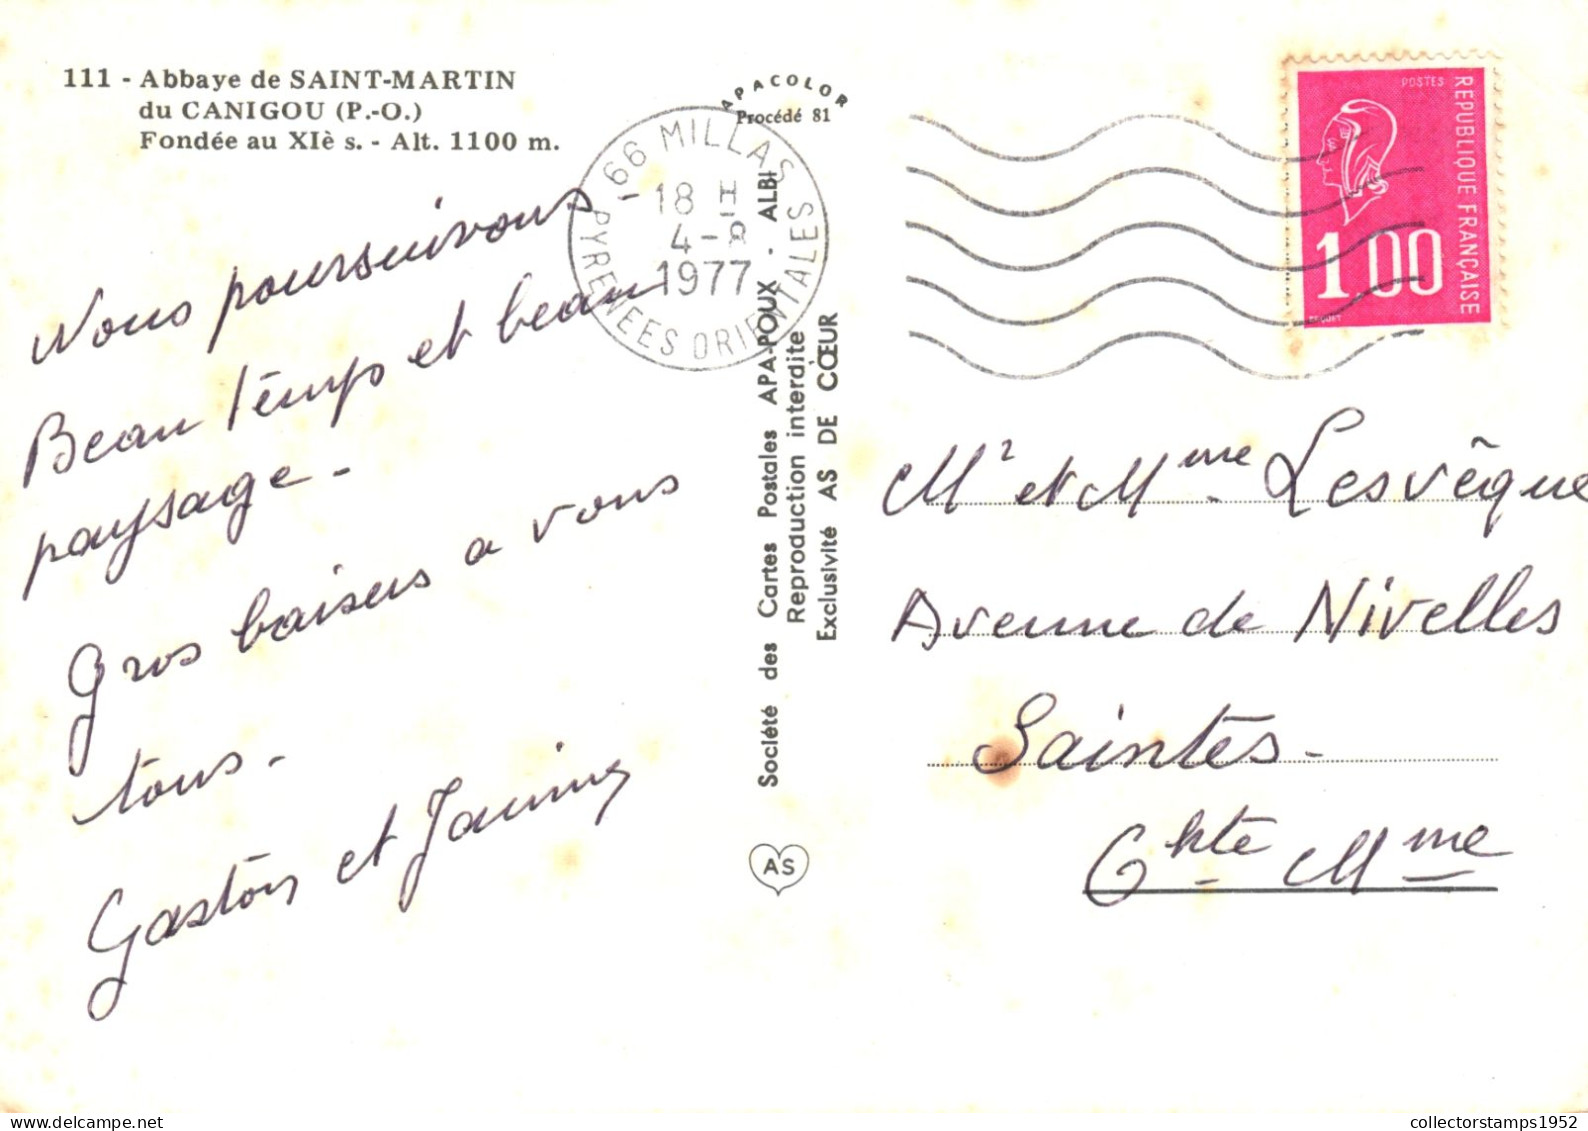 111 - Abbaye de SAINT-MARTIN
du CANIGOU (P.-O.)
Fondée au XIè s. - Alt. 1100 m.
Nous poursuivons
Beau temps et beau
paysage -
Gros baisers a vous
tous -
Gaston et
APACOLOR
Procédé 81
66 MILLAS
PYRENEES ORIENTALES
18 H
4-8
1977
Société des Cartes Postales APA-POUX - ALBI
Reproduction interdite
Exclusivité AS DE CŒUR
AS
POSTES
REPUBLIQUE FRANÇAISE
1,00
BEQUET
Mr et Mme Lesvêque
Avenue de Nivelles
Saintes -
Chte Mme
collectorstamps1952